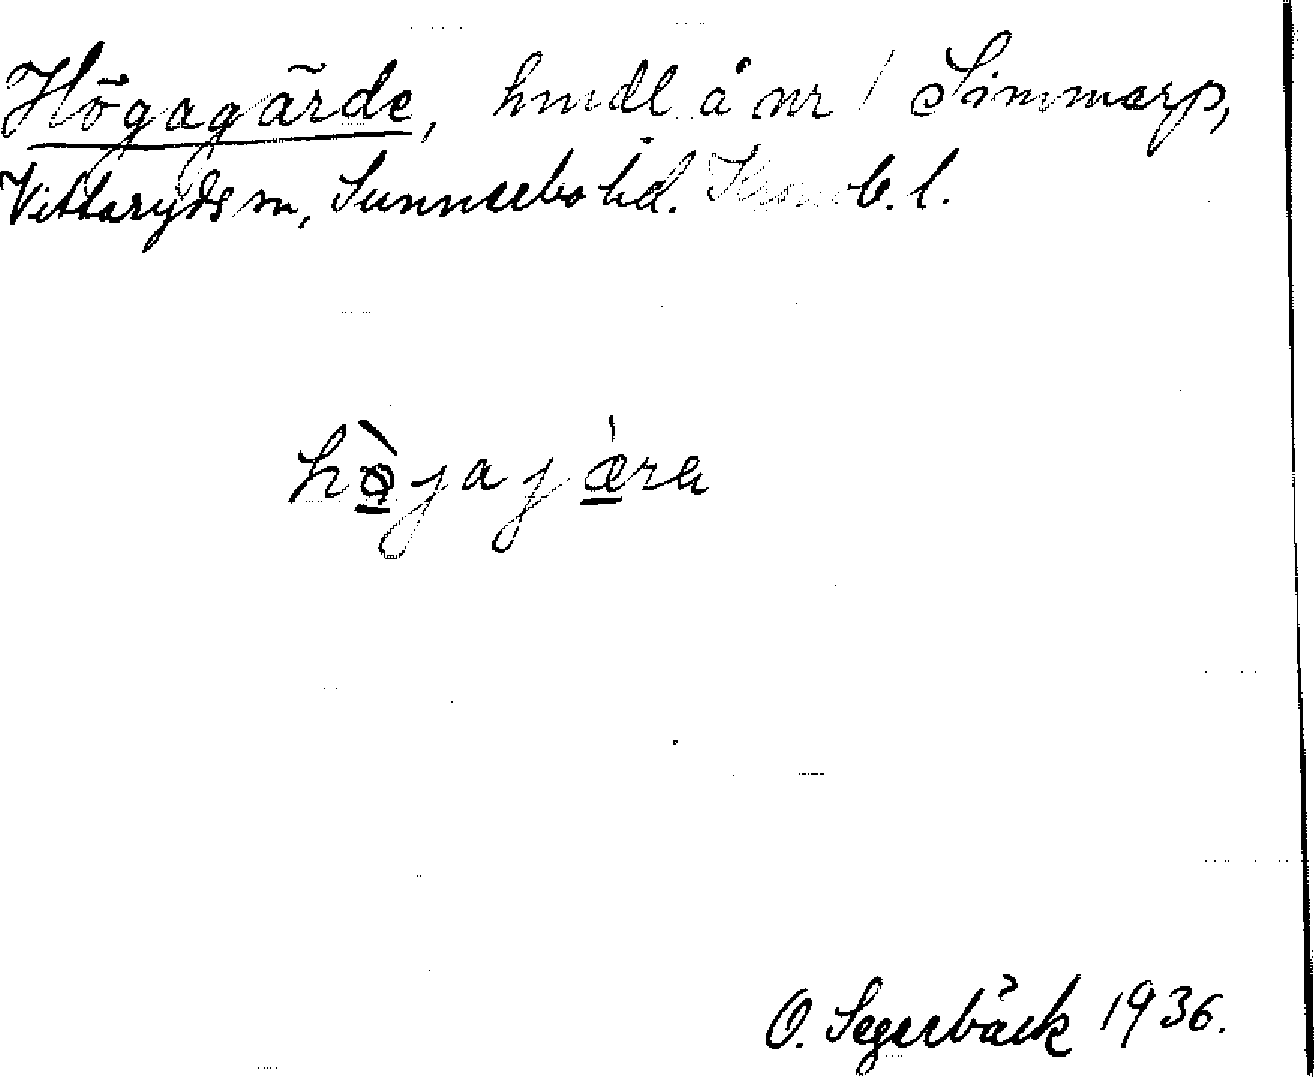 Högagärde, hmdl å nr 1 Simmarp,
Vittaryds sn, Sunnerbo hd. Kronob. l.
hö̀jajæ̀ra
O. Segerbäck 1936.